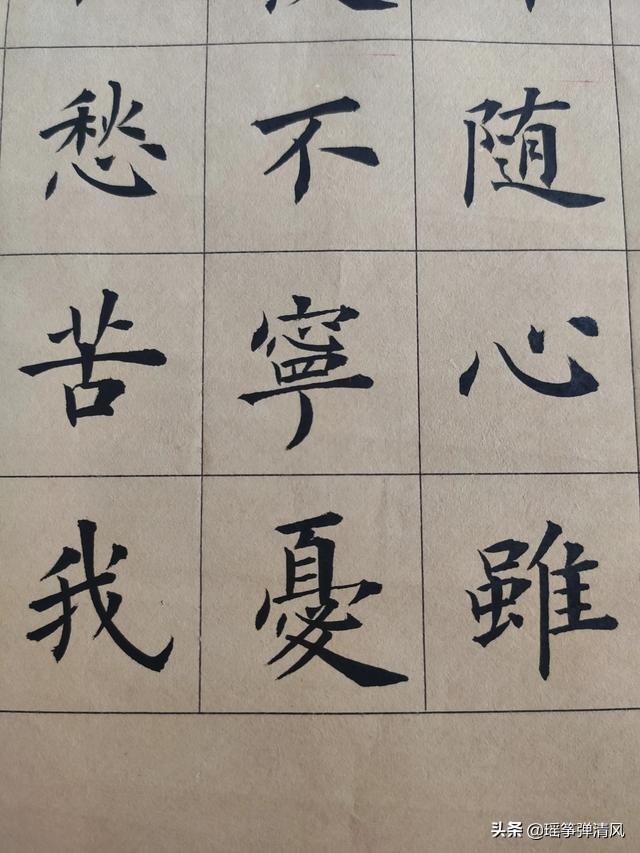 随心雖
不寧憂
愁苦我
头条 @瑶筝弹清风